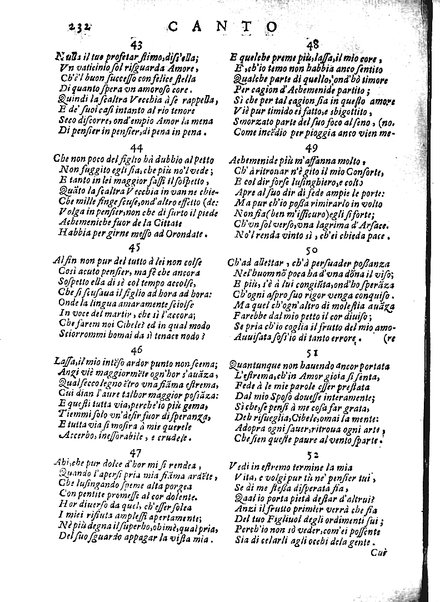 232 CANTO
43
Nulla il tuo profetar stimo, diss'ella;
Vn vaticinio sol risguarda Amore,
Ch'è'l buon successo con felice stella
Di quanto spera vn amoroso core.
Quindi la scaltra Vecchia à se rappella,
E de' suoi casi intanto al rio tenore
Seco discorre, ond'empio Amor la mena
Di pensier in pensier, di pena in pena.
44
Che non poco del figlio hà dubbio al petto
Non fuggito egli sia, che più no'l vede;
E tanto in lei maggior fassi il sospetto,
Quãto la scaltra Vecchia in van ne chie-
Che mille finge scuse, ond'altro effetto (de:
Volga in pensier, non che di furto il piede
Achemenide fuor de la Cittate
Habbia per girne messo ad Orondate.
45
Al fin non pur del tutto à lei non colse
Così acuto pensier, ma fè che ancora
Sospetto ella di sì col tempo accolse,
Che si scusaua il figlio ad hora ad hora:
Onde la lingua amaramente sciolse
In voce del martir, che sì l'accora;
Che farem noi Cibele? ed in qual modo
Sciorrommi homai da sì tenace nodo?
46
Lassa, il mio intẽso ardor punto non scema;
Anzi viè maggiormẽte ogn'hor s'auãza,
Qual secco legno ẽtro vna fiãma estrema,
Cui dian l'aure talhor maggior possãza:
E questi tutta via, perche'io più gema,
Tiemmi solo vn desir fuor di speranza,
E tutta via si mostra à mie querele
Accerbo, inessorabile, e crudele.
47
Ahi, che pur dolce d'hor mi si rendea,
Quando l'apersi pria mia fiãma ardẽte,
Che lusingando speme alta porgea
Con pentite promesse al cor dolente.
Hor diuerso da quel, ch'esser solea
I miei rifiuta amplessi apertamente;
Nè più degna il superbo, ohimè, qual pria,
Del suo sguardo appagar la vista mia.
48
E quelche preme più, lassa, il mio core,
E, ch'io temo non habbia anco sentito
Qualche parte di quello, ond'hò timore
Per cagion d'Achemenide partito;
Sì che per tal cagion sia in questo amore
Viè pur timido ei fatto, e sbigottito,
Smorzato parte del suo foco al seno, (no)
Come incẽdio per pioggia anco vien me-
49
Achemenide più m'affanna molto,
Ch'à ritronar n'è gito il mio Consorte,
E col dir forse lusinghiero, e colto
Apre al suo dir di fede ampie le porte:
Ma pur ch'io possa rimirarlo in volto
Non fia (ben m'assicuro) egli sì forte;
Ch'vn sol verso, vna lagrima d'Arsace,
No'l renda vinto sì, ch'ei chieda pace.
50
Ch'ad allettar, ch'à persuader possanza
Nel buom nõ poca ha d'vna dõna il viso;
E più, s'è à lui congiũta, ond'ho sperãza
Ch'ogni aspro suo rigor venga conquiso.
Ma quel ch'ogn'altro di molestia auãza
Farebbe dal mio petto il cor diuiso;
Se pria ch'io coglia il frutto del mio amo-
Auuisata foss'io di tanto errore. (re
51
Quantunque non hauendo ancor portata
L'estrema, ch'in Amor gioia si senta,
Fede à le mie parole esser prestata
Dal mio Sposo douesse interamente;
Sì che se pensi à me cosa far grata,
Deh risueglia, Cibele, omai la mente:
Adopra ogni sauer, ritroua ogni arte,
Che sien queste paure al vento sparte.
52
Vedi in estremo termine la mia
Vita, e volgi pur tù ne' pensier tui,
Se di me stessa disperata sia,
Qual io porta pietà destar d'altrui?
Anzi il frutto primier verrà che sia
Del tuo Figliuol degli ordimenti sui;
Perch'io non sò veder, com'ei possente
Sia di celarli agli occhi de la gente.
Cur